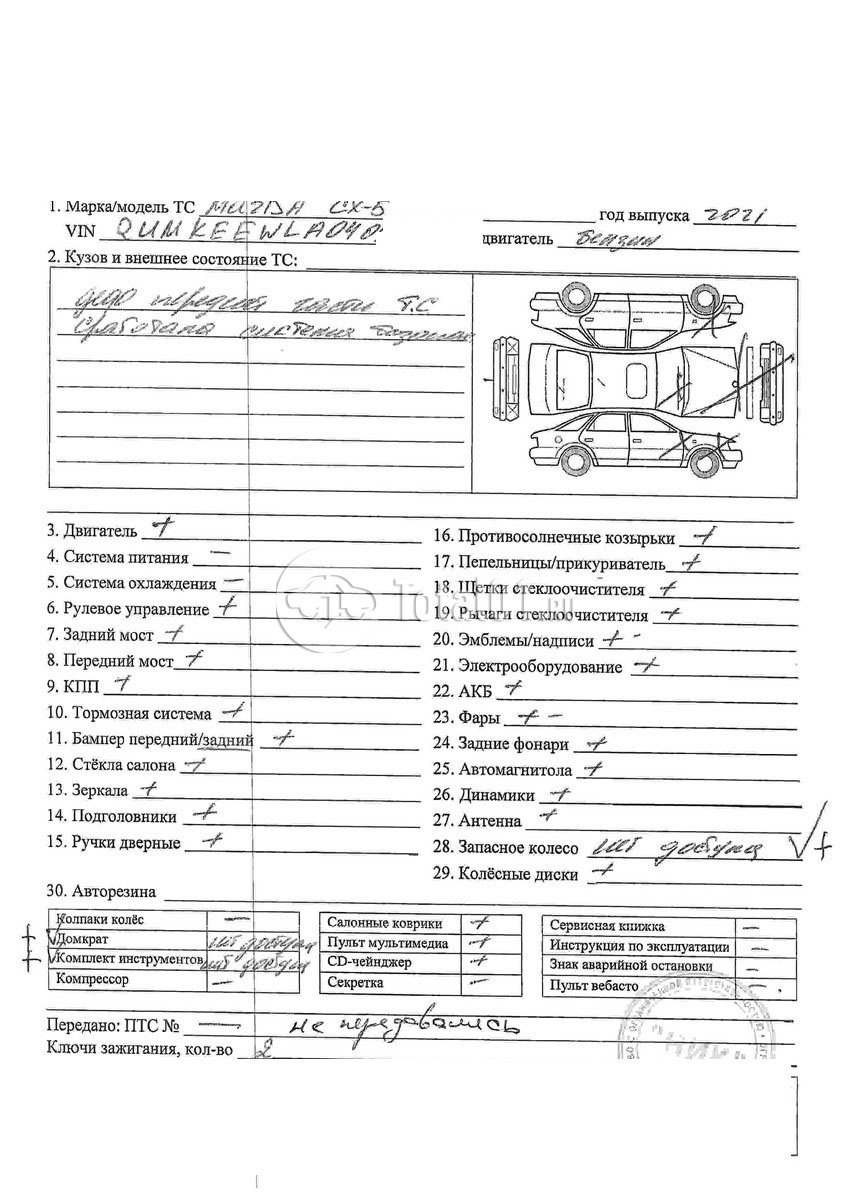 1. Марка/модель ТС MAZDA CX-5 год выпуска 2021
VIN QUMKEEWLA040 двигатель бензин
2. Кузов и внешнее состояние ТС:
передней части Т.С
Сработана система
3. Двигатель +
4. Система питания —
5. Система охлаждения —
6. Рулевое управление +
7. Задний мост +
8. Передний мост +
9. КПП +
10. Тормозная система +
11. Бампер передний/задний +
12. Стёкла салона +
13. Зеркала +
14. Подголовники +
15. Ручки дверные +
16. Противосолнечные козырьки +
17. Пепельницы/прикуриватель +
18. Щетки стеклоочистителя +
19. Рычаги стеклоочистителя +
20. Эмблемы/надписи + -
21. Электрооборудование +
22. АКБ +
23. Фары + –
24. Задние фонари +
25. Автомагнитола +
26. Динамики +
27. Антенна +
28. Запасное колесо нет доступа √ +
29. Колёсные диски +
Total01.ru
30. Авторезина
Колпаки колёс —
+ √ Домкрат нет доступа
+ √ Комплект инструментов нет доступа
Компрессор —
Салонные коврики +
Пульт мультимедиа +
CD-чейнджер +
Секретка —
Сервисная книжка —
Инструкция по эксплуатации —
Знак аварийной остановки —
Пульт вебасто —
Передано: ПТС № — не передавались
Ключи зажигания, кол-во 2